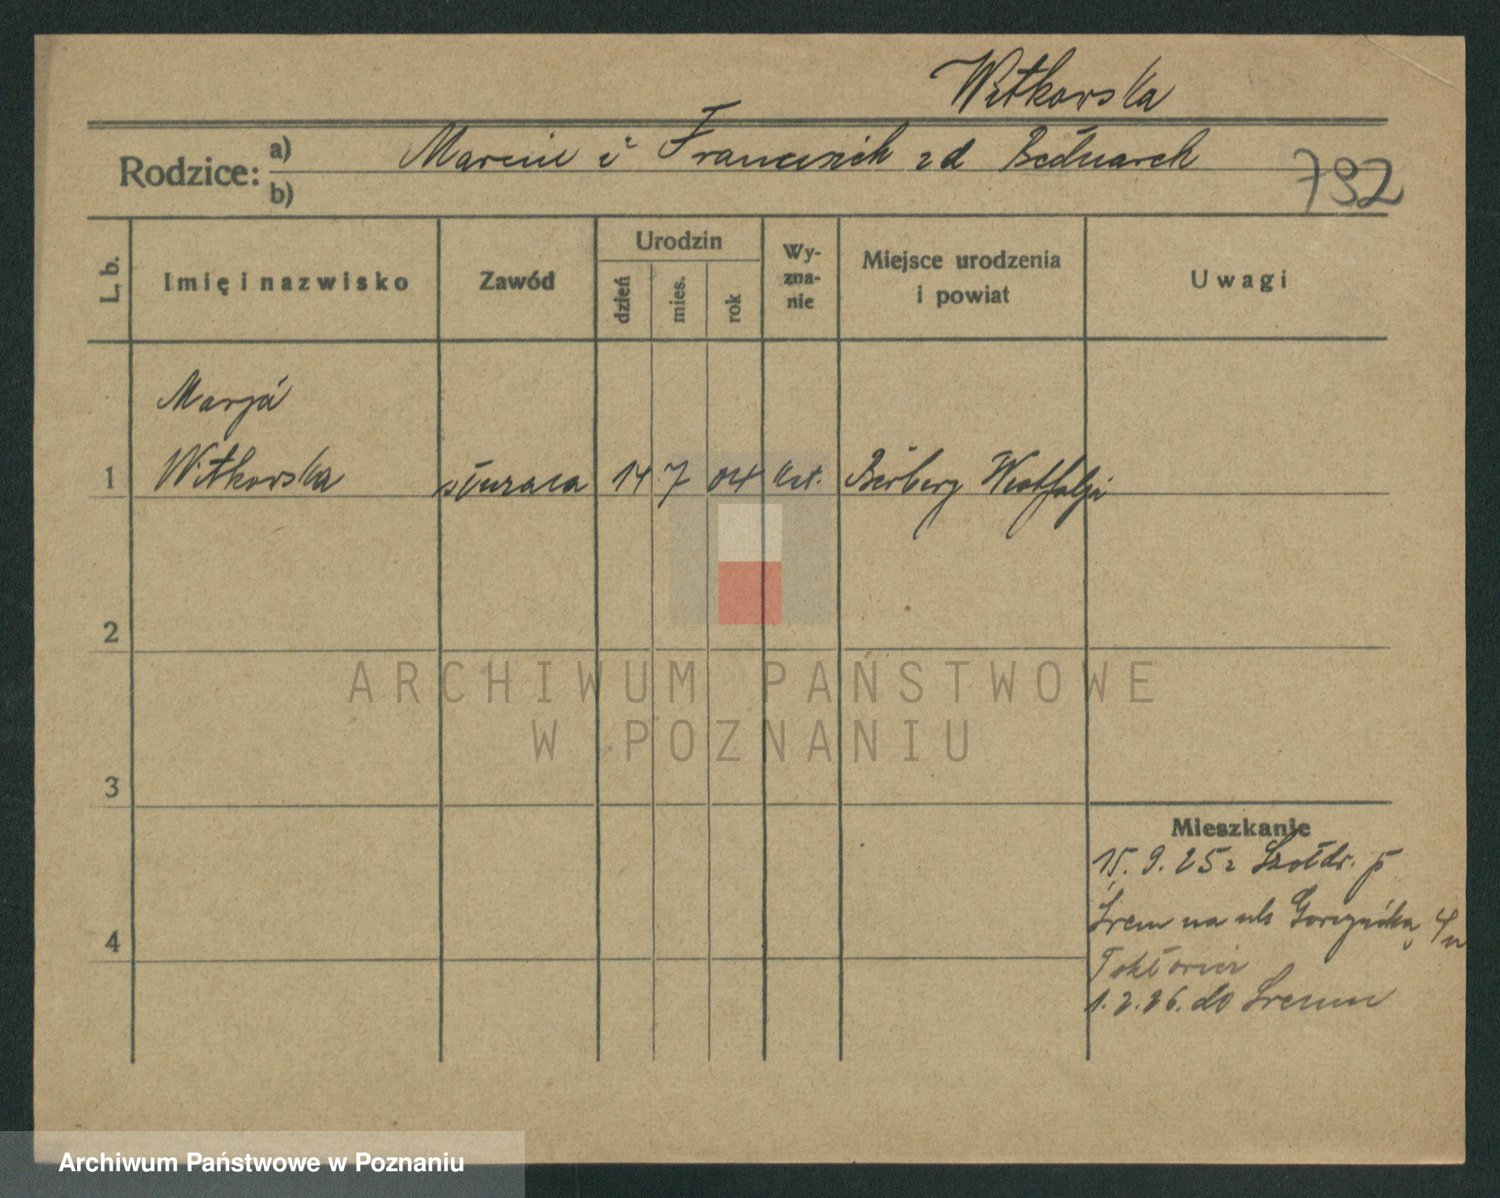 Witkowska
Rodzice: a) Marcin i Franciszek zd Bednarek
b)
792
L. b.
Imię i nazwisko
Zawód
Urodzin
dzień
mies.
rok
Wy-
zna-
nie
Miejsce urodzenia
i powiat
Uwagi
Marja
1 Witkowska służąca 14 7 04 kat. Westfalja
2
ARCHIWUM PAŃSTWOWE
W POZNANIU
3
Mieszkanie
15. 9. 25 z Szołdr. p
Śrem na ul.
4
1. 2. 26. do Śremu
Archiwum Państwowe w Poznaniu